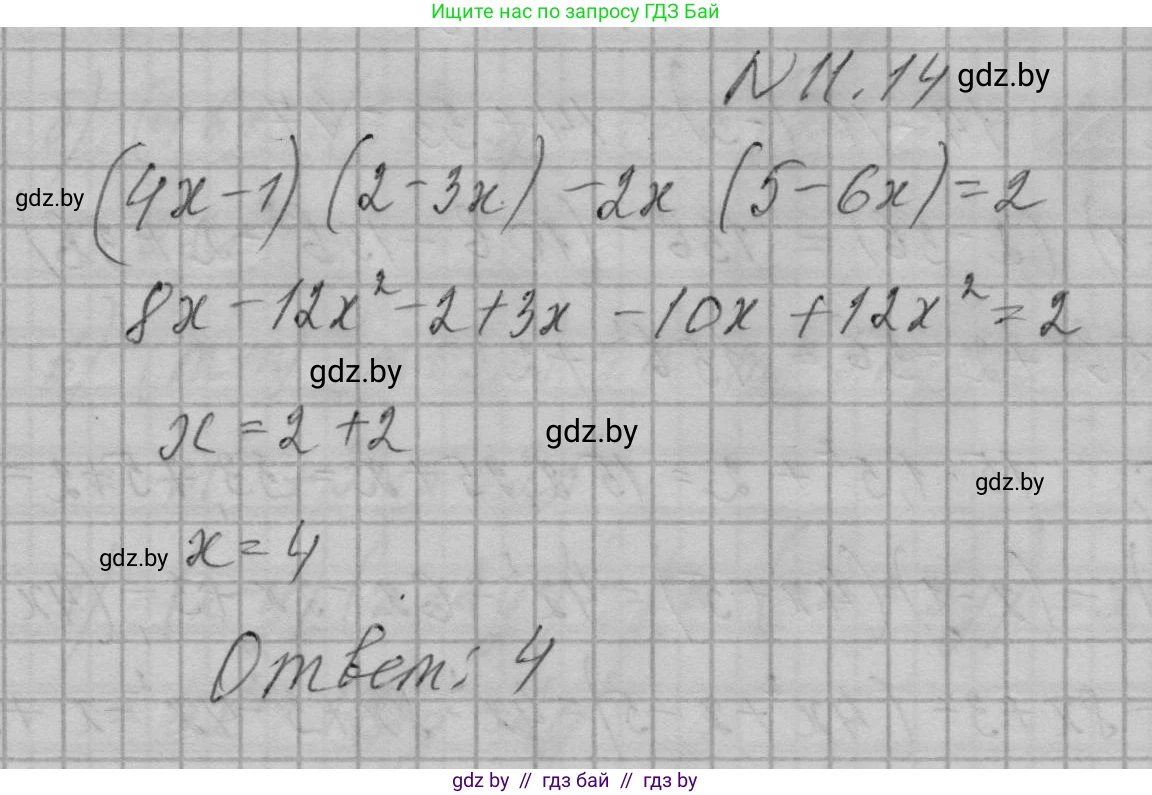 Ищите нас по запросу ГДЗ Бай
N 11.14 gdz.by
gdz.by (4x-1) (2-3x) -2x (5-6x)=2
8x-12x²-2+3x -10x +12x²=2
gdz.by
x=2+2 gdz.by
gdz.by
gdz.by x=4
Ответ: 4
gdz by // гдз бай // гдз by